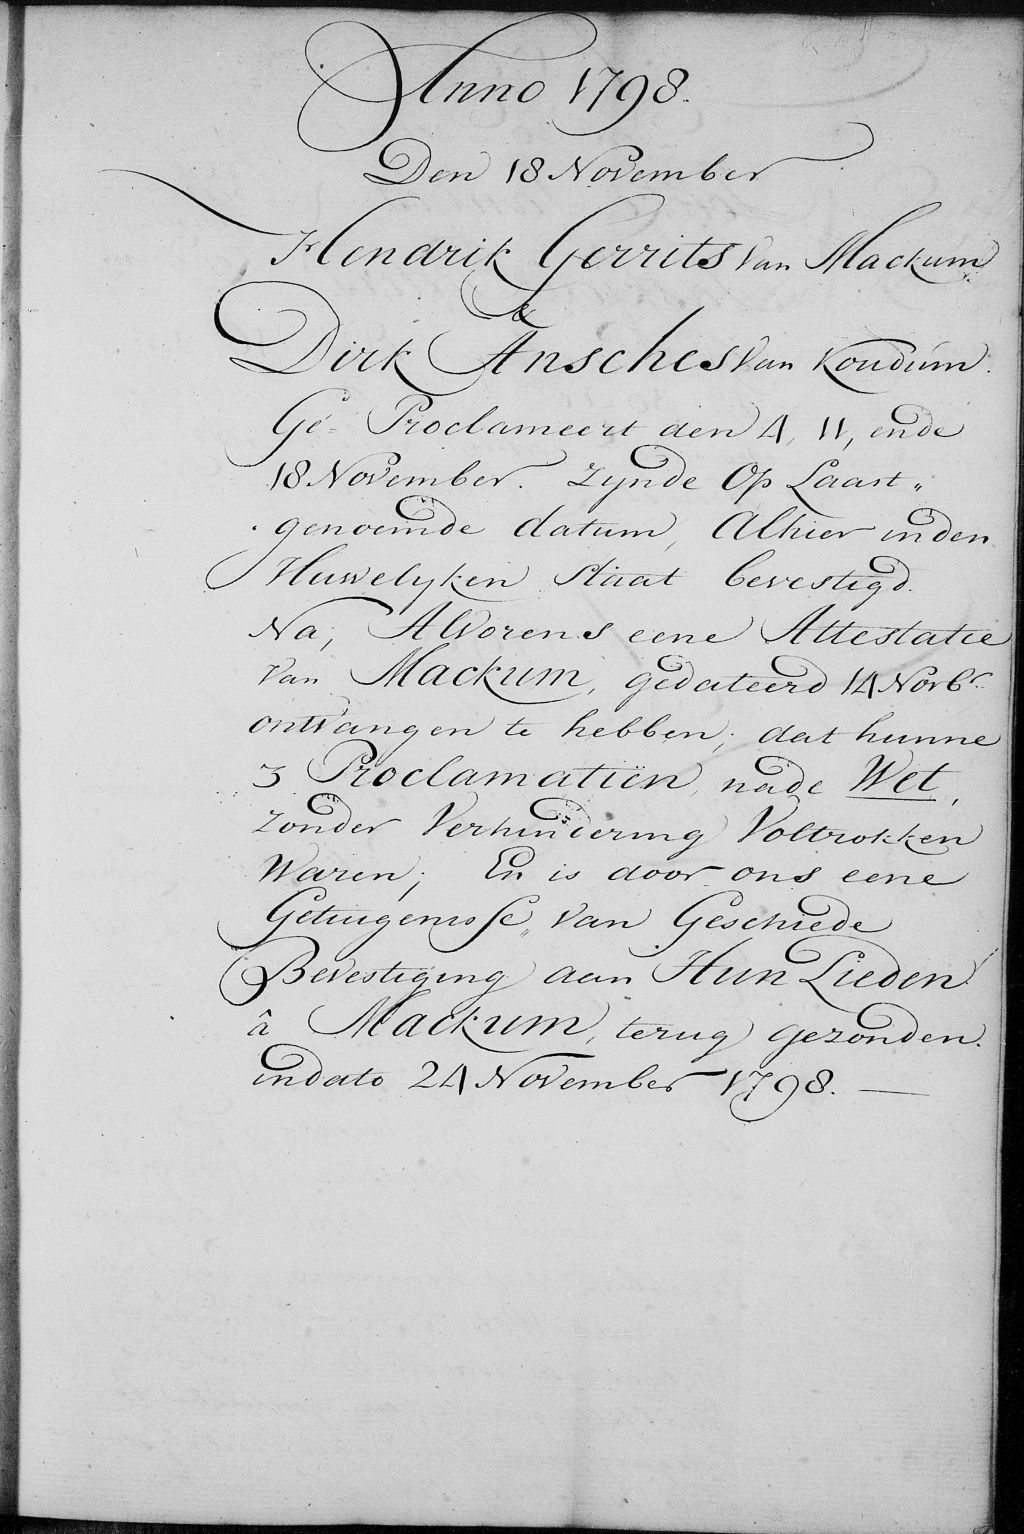 Anno 1798.
Den 18 November
Hendrik Gerrits Van Mackum
&
Dirk Ansches Van Koudum.
Ge- Proclameert den 4, 11, ende
18 November. Zynde Op Laast„
genoemde datum, Alhier in den
Huwelyken Staat bevestigd.
Na, Alvorens eene Attestatie
Van Mackum, gedateerd 14 Novbr.
ontvangen te hebben; dat hunne
3 Proclamatiën, na de Wet,
zonder Verhindering Voltrokken
Waren; En is door ons eene
Getuigenisse, van Geschiede
Bevestiging aan Hun Lieden
â Mackum, terug gezonden.
in dato 24 November 1798. —